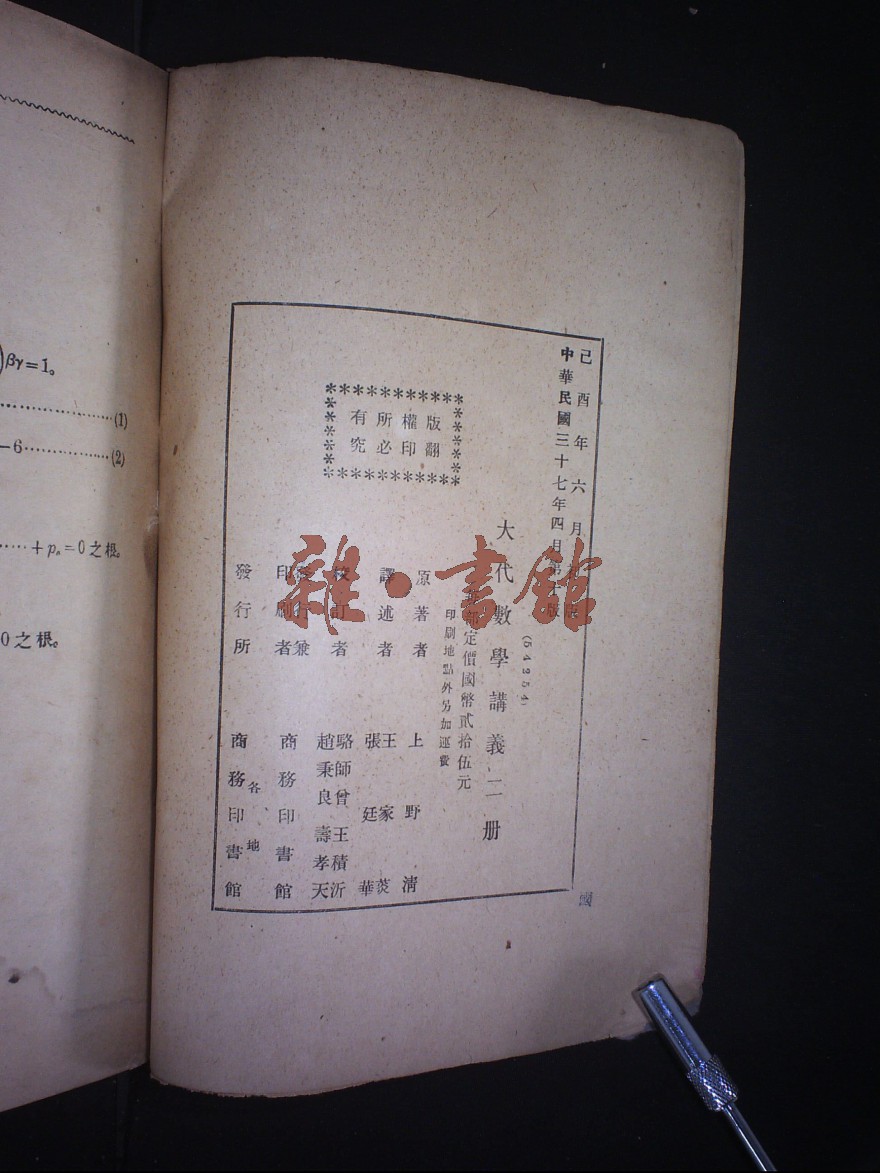 βγ=1。
(1)
-6 (2)
+pₙ=0之根。
0之根。
己酉年六月初版
中華民國三十七年四月第
版
(54254)
大代數學講義二册
定價國幣貳拾伍元
印刷地點外另加運費
版權所有
翻印必究
原著者 上野清
譯述者 王家菼 張廷華
校訂者 駱師曾 王積沂 趙秉良 壽孝天
發行兼
印刷者 商務印書館
發行所 各地 商務印書館
國
雜·書館